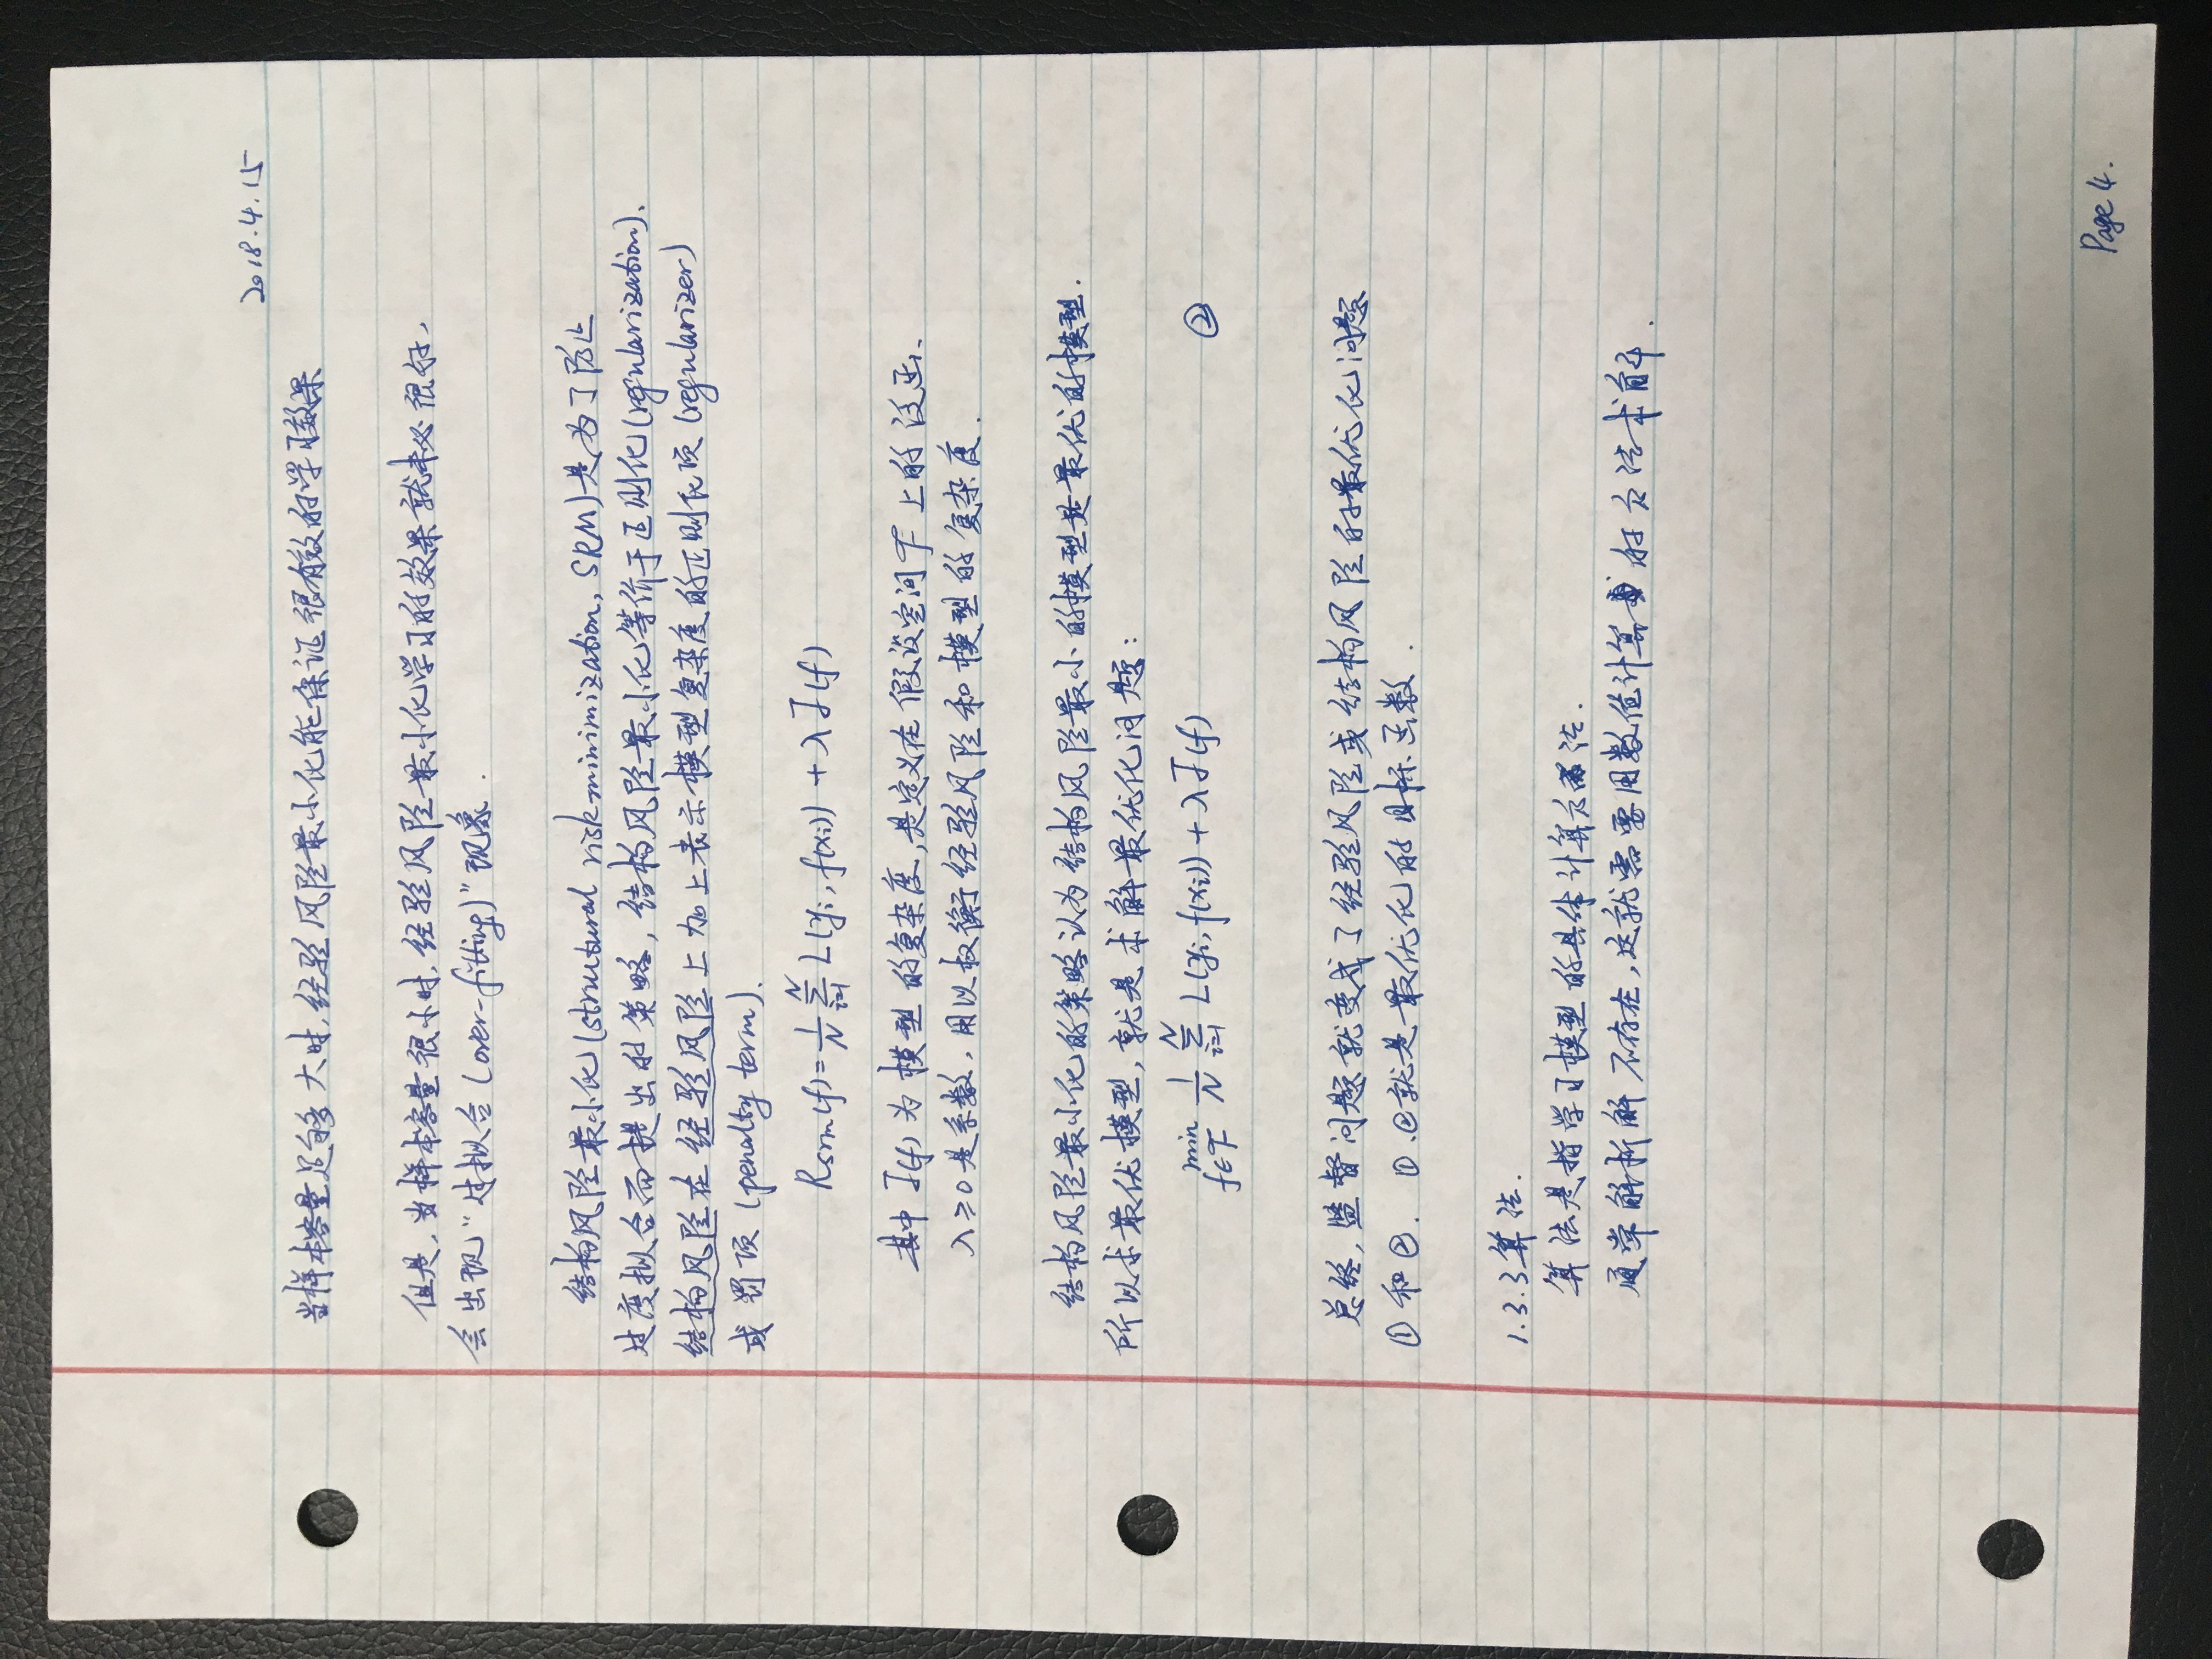 2018.4.15
当样本容量足够大时,经验风险最小化能保证很有效的学习效果
但是,当样本容量很小时,经验风险最小化学习的效果就未必很好,
会出现“过拟合(over-fitting)”现象.
结构风险最小化(strutural risk minimization, SRM)是为了防止
过度拟合而提出的策略,结构风险最小化等价于正则化(regularization).
结构风险在经验风险上加上表示模型复杂度的正则化项(regularizer)
或罚项(penalty term).
Rsrm(f)=1/N ∑_{i=1}^{N} L(yi,f(xi))+λJ(f)
其中J(f)为模型的复杂度,是定义在假设空间F上的泛函.
λ≥0是系数,用以权衡经验风险和模型的复杂度.
结构风险最小化的策略认为结构风险最小的模型是最优的模型.
所以求最优模型,就是求解最优化问题:
min_{f∈F} 1/N ∑_{i=1}^{N} L(yi,f(xi))+λJ(f) ②
总结,监督问题就变成了经验风险或结构风险的最优化问题
①和②. ①.②就是最优化的目标函数.
1.3.3算法.
算法是指学习模型的具体计算方法.
通常解析解不存在,这就需要用数值计算的方法求解.
Page 4.